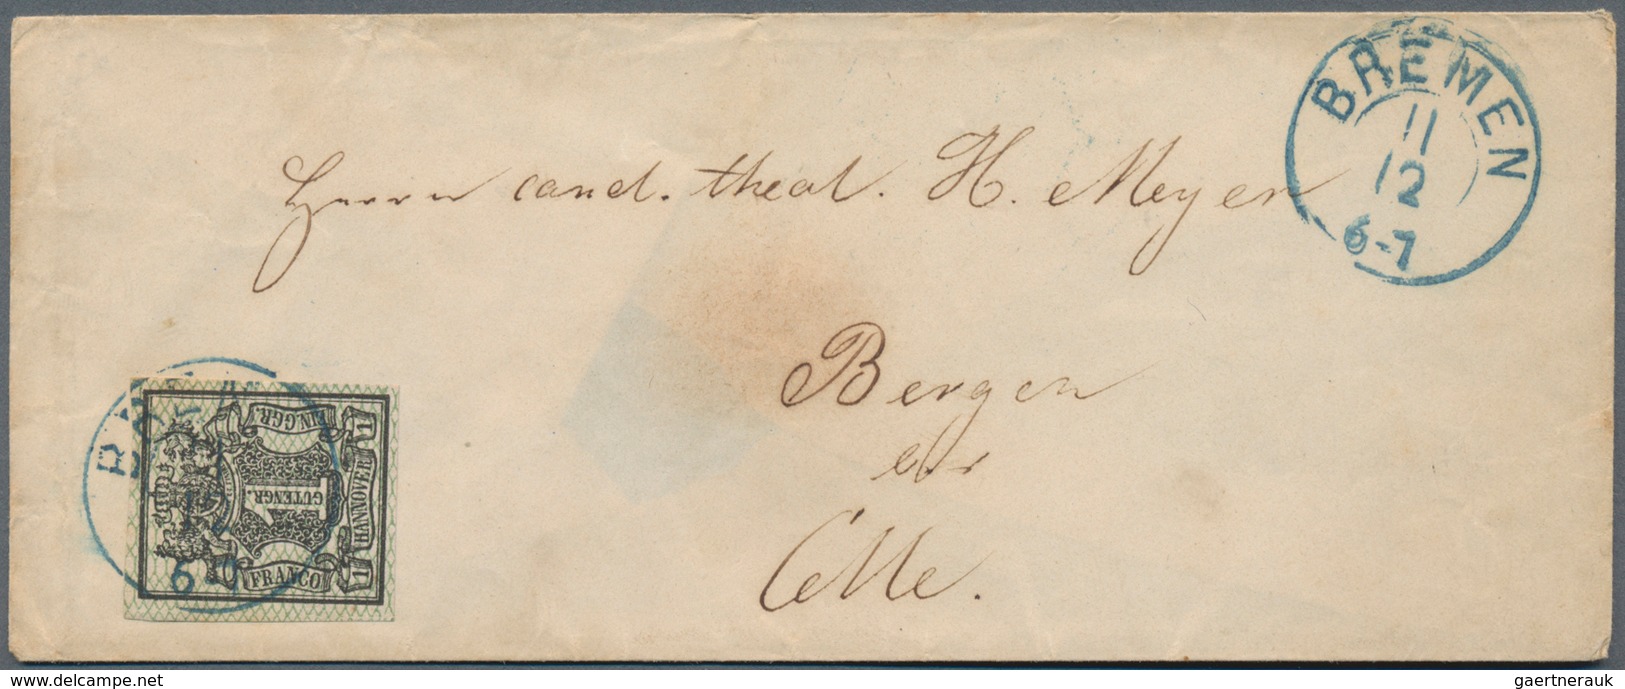 BREMEN
11
12
6-7
Herrn cand. theol. H. Meyer
Bergen
Celle.
12
6-7
EIN.GGR.
1
HANNOVER
1
GUTENGR.
FRANCO
delcampe.net
gaertnerauk